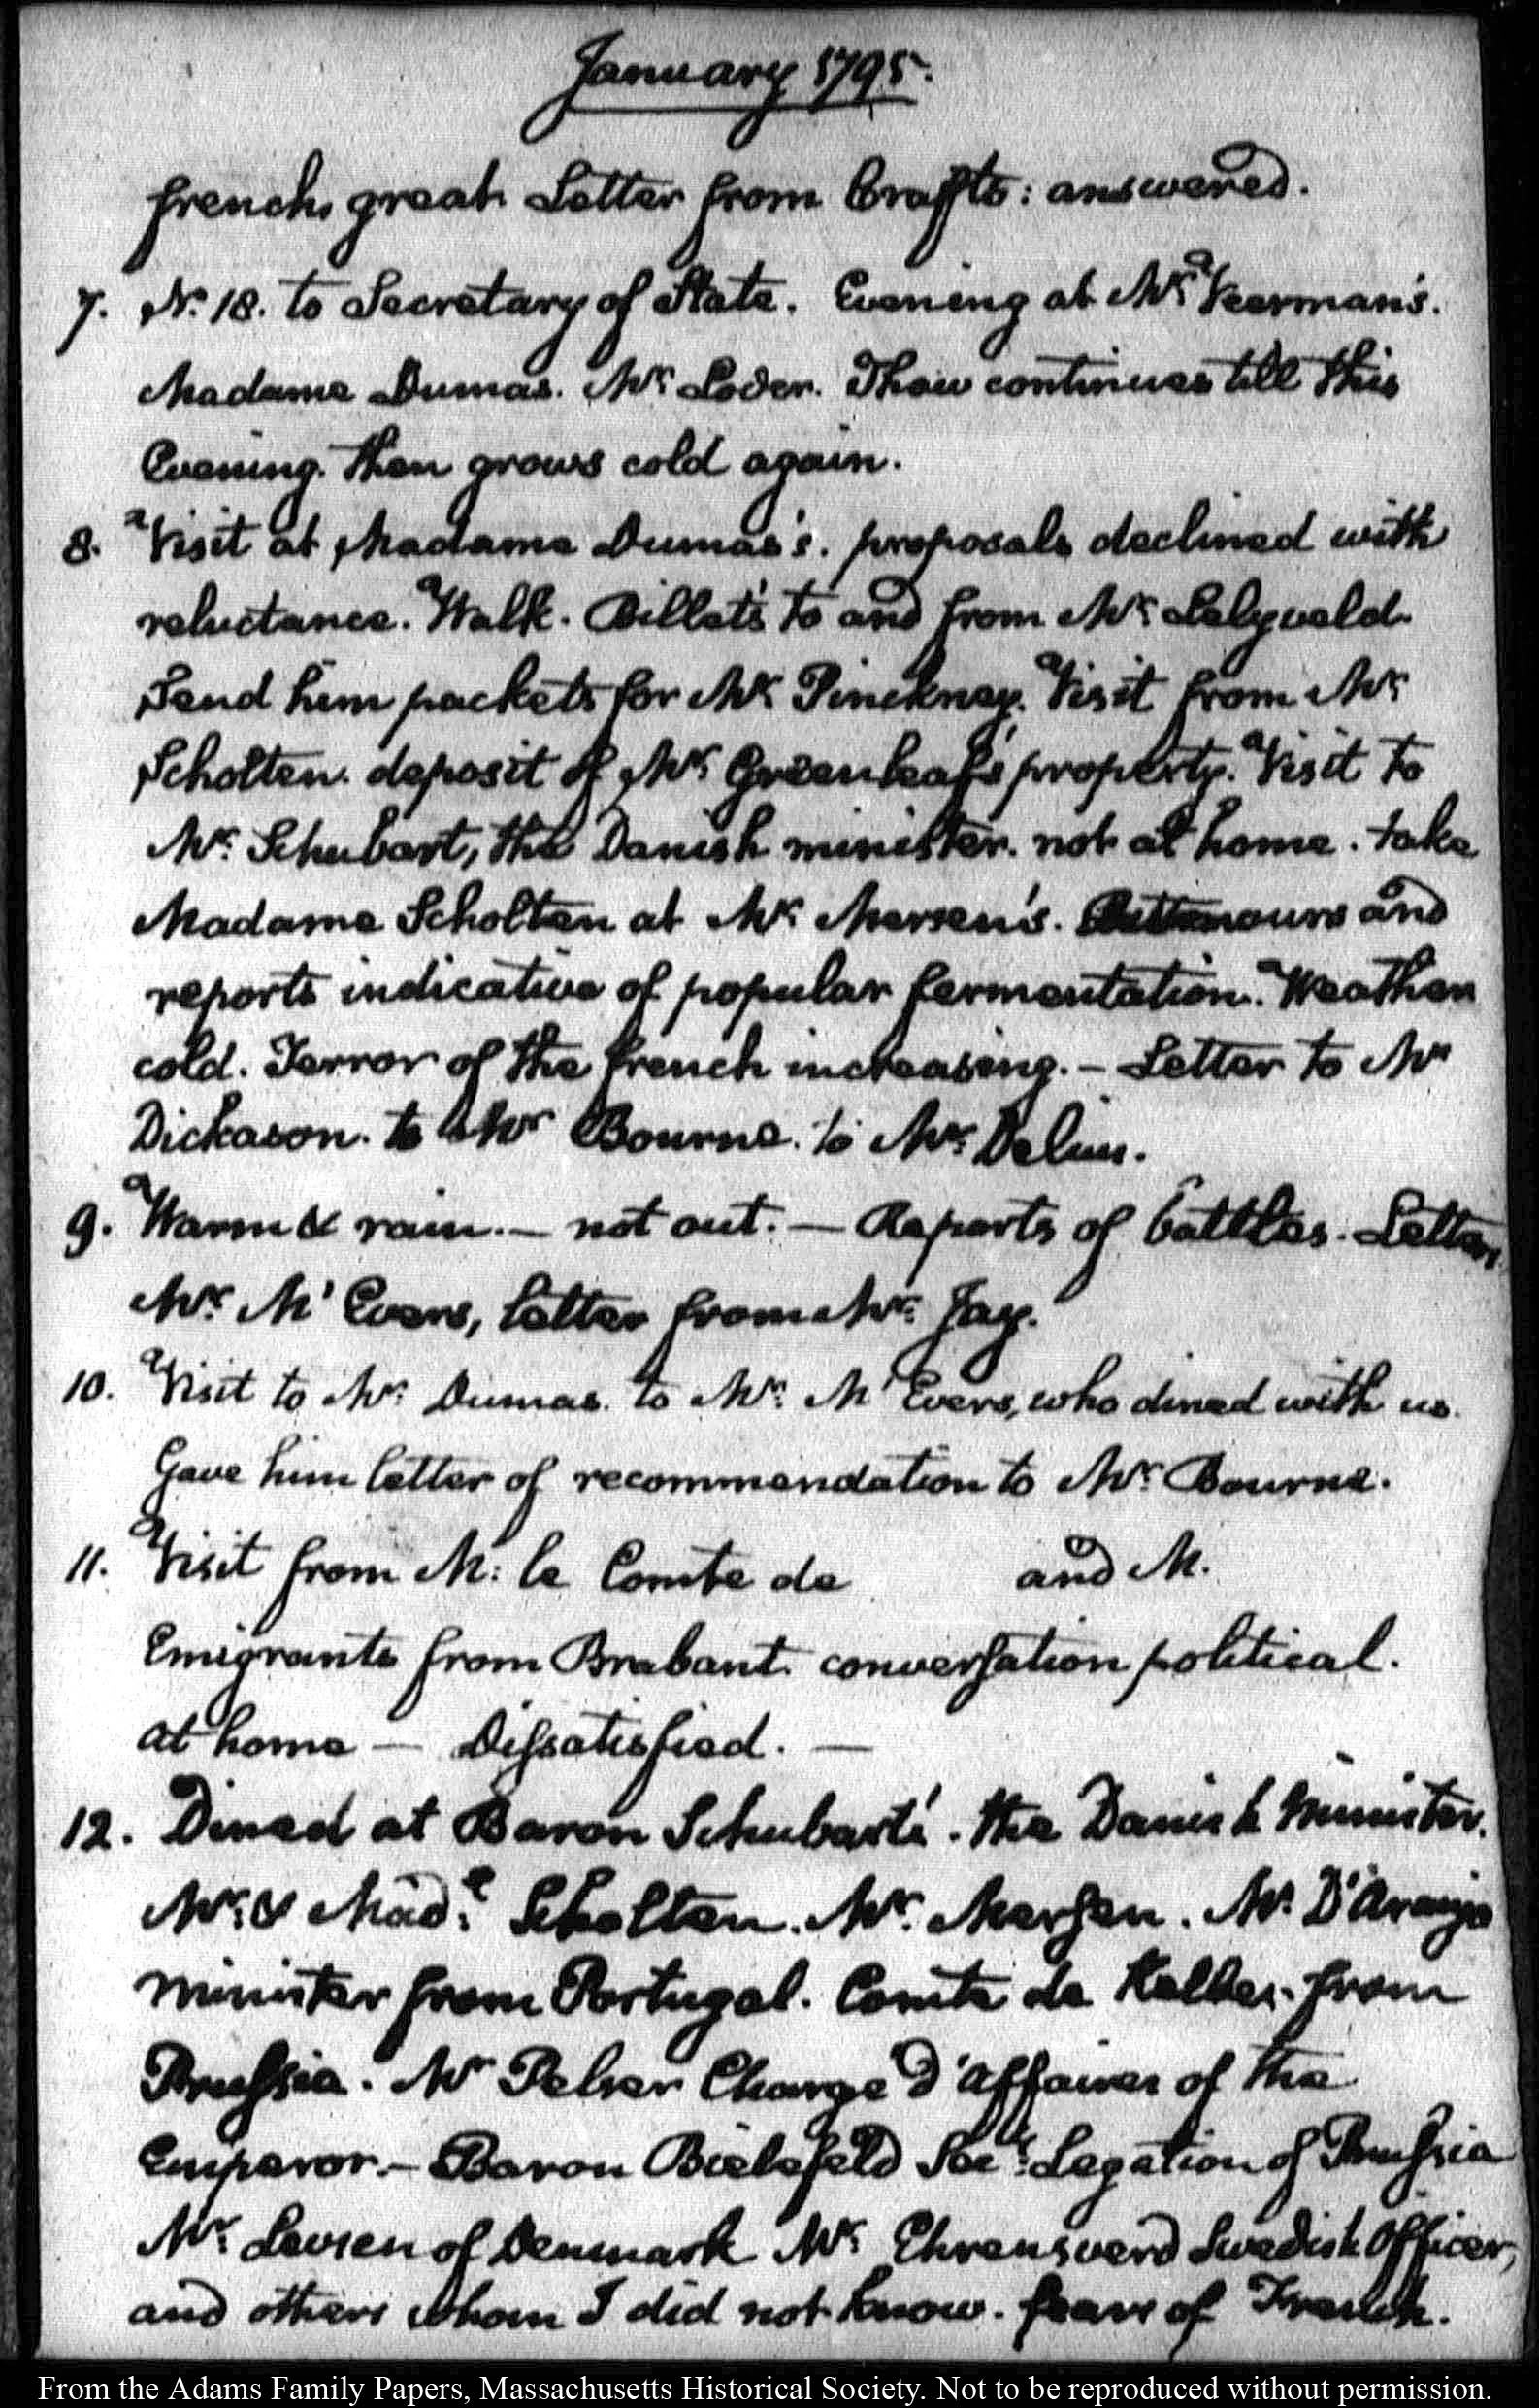 January 1795.
french great. Letter from Crafts: answered.
7. N.° 18. to Secretary of State. Evening at Mr. Veerman's.
Madame Dumas. Mr. Loder. Thaw continues till this
Evening. then grows cold again.
8. Visit at Madame Dumas's. proposals declined with
reluctance. Walk. Billets to and from Mr. Lelyveld.
Send him packets for Mr. Pinckney. Visit from Mr.
Scholten. deposit of Mr. Greenleaf's property. Visit to
Mr. Schubart, the Danish minister. not at home. take
Madame Scholten at Mr. Mersen's. and
reports indicative of popular fermentation. Weather
cold. Terror of the french increasing. — Letter to Mr
Dickason. to Mr Bourne. to Mr. Delius.
9. Warm & rain. — not out. — Reports of battles. Letter
Mr. M'Evers, letter from Mr. Jay.
10. Visit to Mr. Dumas. to Mr. M'Evers, who dined with us.
Gave him letter of recommendation to Mr. Bourne.
11. Visit from M: le Comte de and M.
Emigrants from Brabant. conversation political.
at home — Dissatisfied. —
12. Dined at Baron Schubart's. the Danish Minister.
Mr. & Mad.e Scholten. Mr. Mersen. Mr. D'Araujo
minister from Portugal. Comte de Keller. from
Prussia. Mr Pelser Chargé d'Affaires of the
Emperor. — Baron Bielefeld Sec.y Legation of Prussia
Mr. Levsen of Denmark Mr. Ehrensverd Swedish Officer,
and others whom I did not know. fears of French.
From the Adams Family Papers, Massachusetts Historical Society. Not to be reproduced without permission.